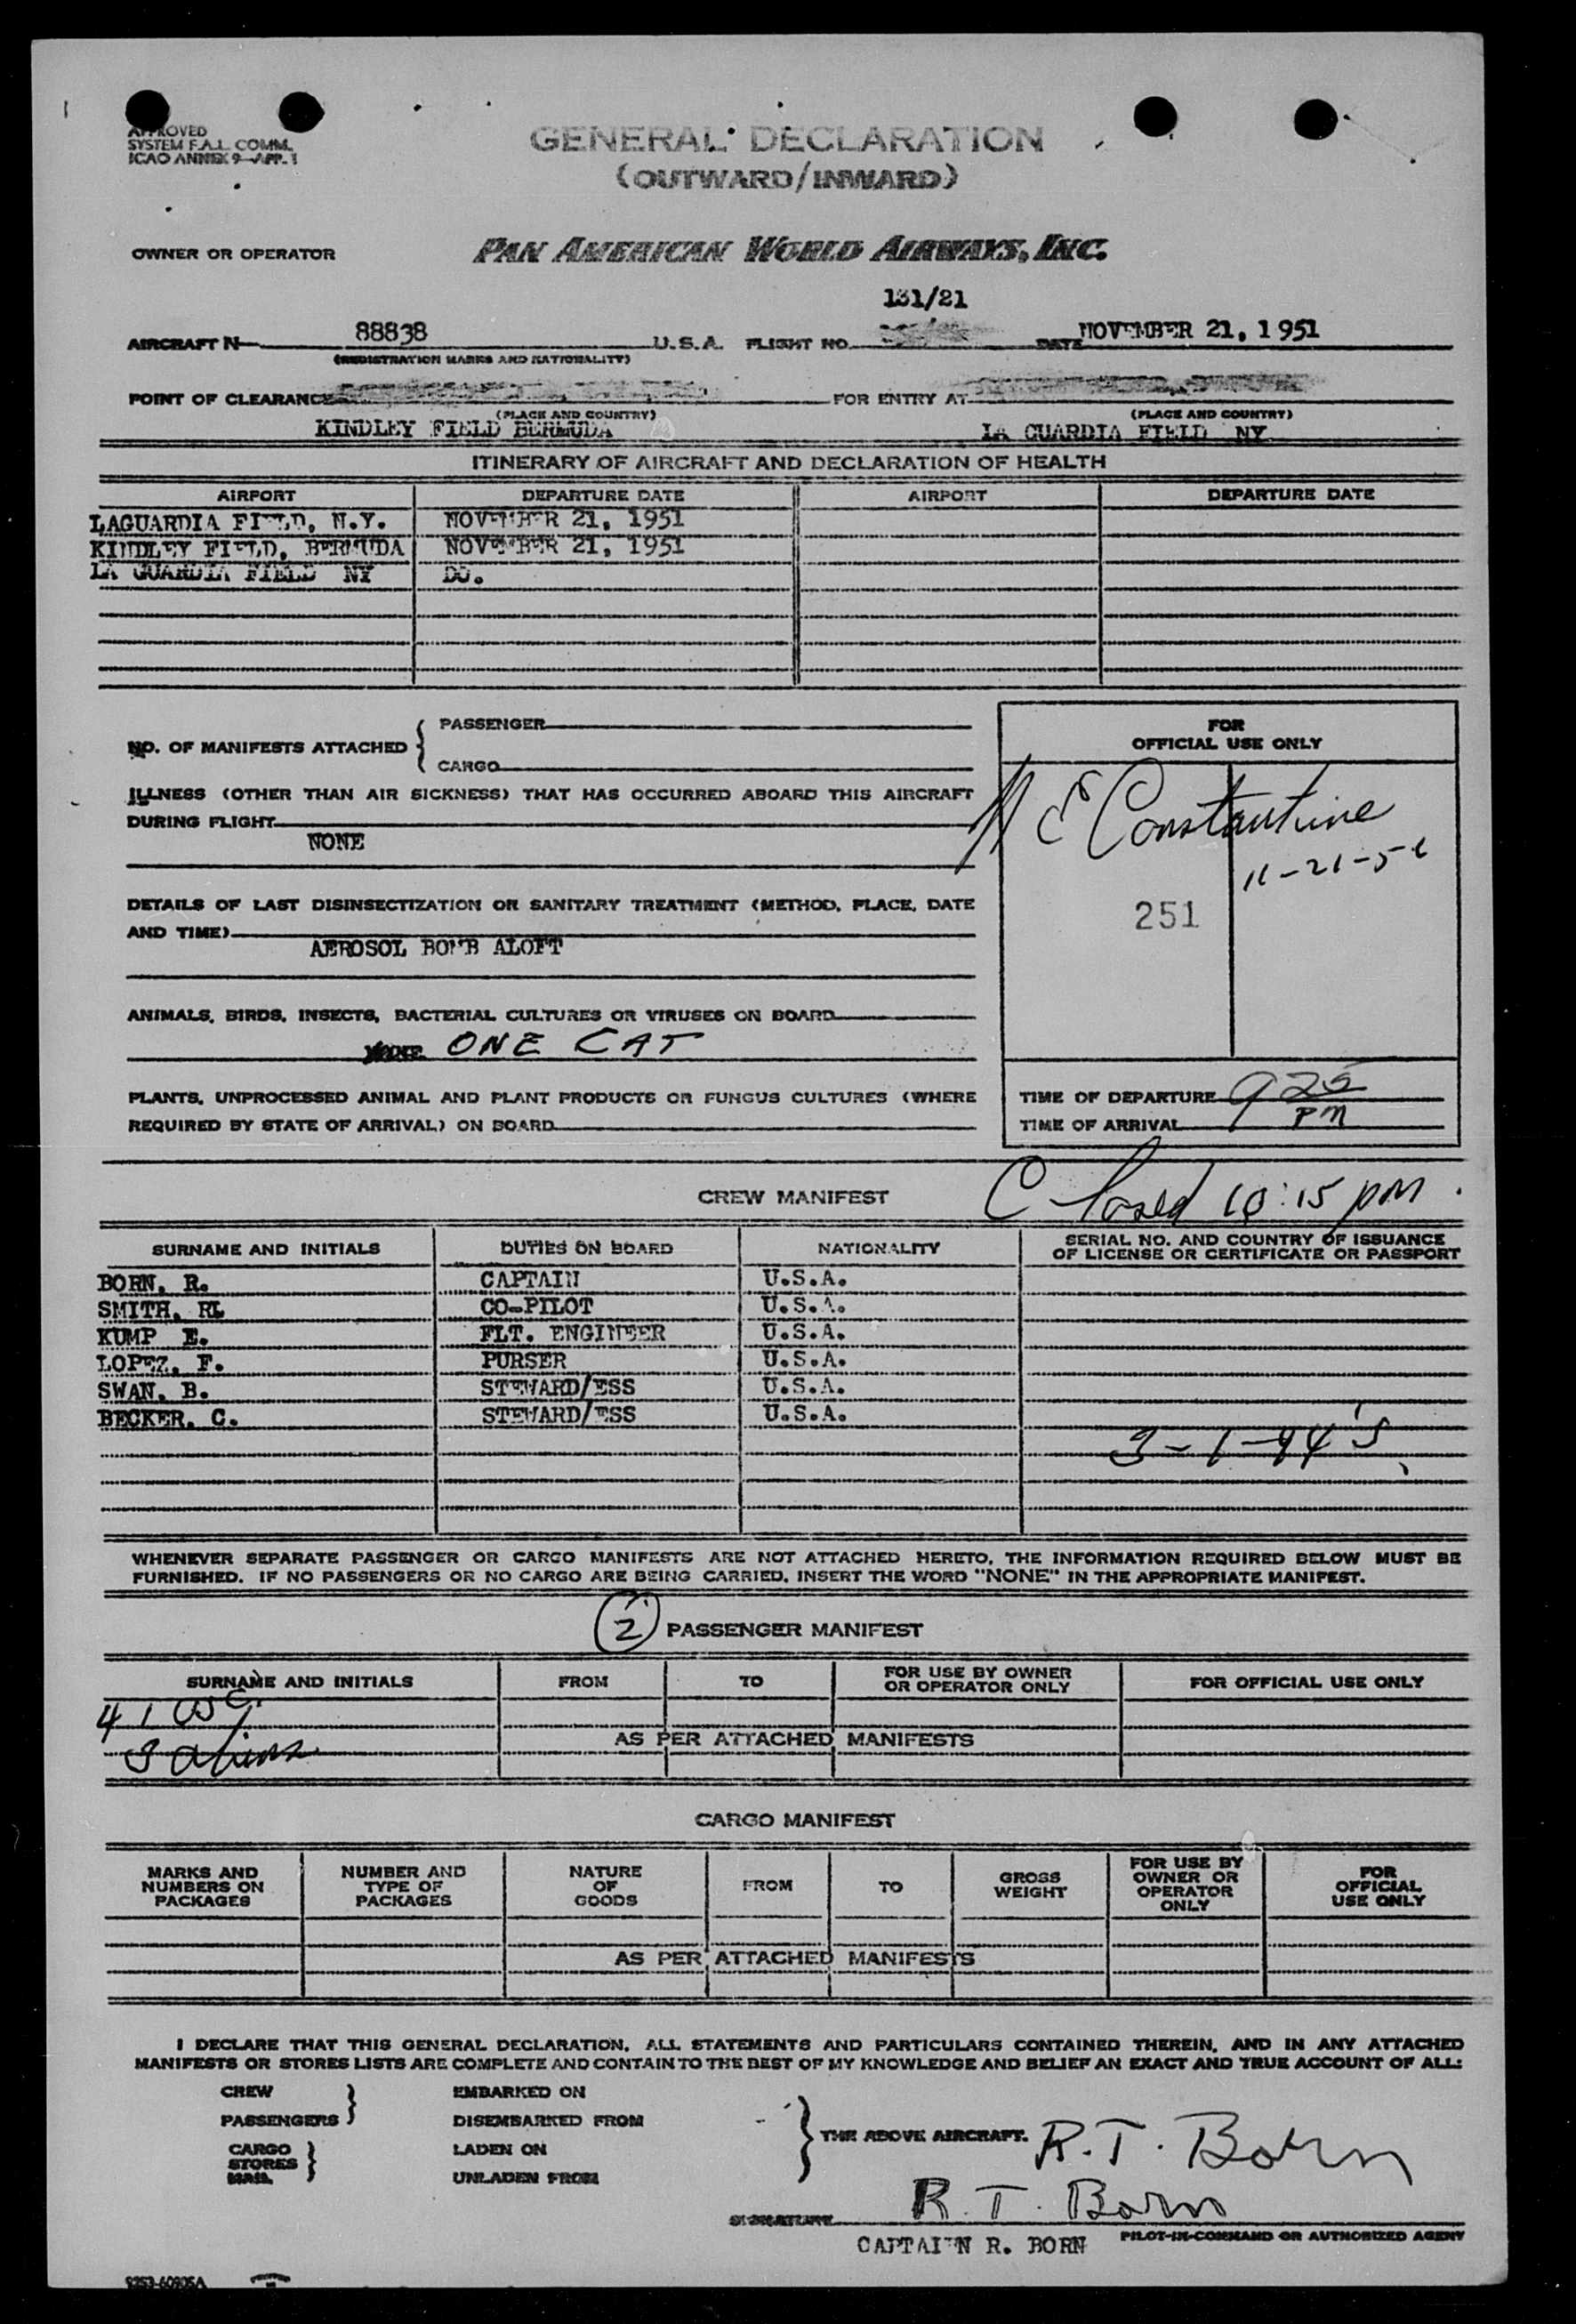 APPROVED
SYSTEM F.A.L. COMM.
ICAO ANNEX 9-APP. 1
GENERAL DECLARATION
(OUTWARD/INWARD)
OWNER OR OPERATOR PAN AMERICAN WORLD AIRWAYS, INC.
131/21
AIRCRAFT N 88838 U.S.A. FLIGHT NO. DATE NOVEMBER 21, 1951
(REGISTRATION MARKS AND NATIONALITY)
POINT OF CLEARANCE FOR ENTRY AT
(PLACE AND COUNTRY) (PLACE AND COUNTRY)
KINDLEY FIELD BERMUDA LA GUARDIA FIELD NY
ITINERARY OF AIRCRAFT AND DECLARATION OF HEALTH
AIRPORT DEPARTURE DATE AIRPORT DEPARTURE DATE
LAGUARDIA FIELD, N.Y. NOVEMBER 21, 1951
KINDLEY FIELD, BERMUDA NOVEMBER 21, 1951
LA GUARDIA FIELD NY DO.
NO. OF MANIFESTS ATTACHED { PASSENGER
CARGO
FOR
OFFICIAL USE ONLY
ILLNESS (OTHER THAN AIR SICKNESS) THAT HAS OCCURRED ABOARD THIS AIRCRAFT
DURING FLIGHT
NONE
E Constantine
11-21-51
251
DETAILS OF LAST DISINSECTIZATION OR SANITARY TREATMENT (METHOD, PLACE, DATE
AND TIME)
AEROSOL BOMB ALOFT
ANIMALS, BIRDS, INSECTS, BACTERIAL CULTURES OR VIRUSES ON BOARD
ONE CAT
PLANTS, UNPROCESSED ANIMAL AND PLANT PRODUCTS OR FUNGUS CULTURES (WHERE
REQUIRED BY STATE OF ARRIVAL) ON BOARD
TIME OF DEPARTURE 925
TIME OF ARRIVAL PM
CREW MANIFEST Closed 10:15 pm.
SURNAME AND INITIALS DUTIES ON BOARD NATIONALITY SERIAL NO. AND COUNTRY OF ISSUANCE
OF LICENSE OR CERTIFICATE OR PASSPORT
BORN, R. CAPTAIN U.S.A.
SMITH, RL CO-PILOT U.S.A.
KUMP E. FLT. ENGINEER U.S.A.
LOPEZ, F. PURSER U.S.A.
SWAN, B. STEWARD/ESS U.S.A.
BECKER, C. STEWARD/ESS U.S.A.
WHENEVER SEPARATE PASSENGER OR CARGO MANIFESTS ARE NOT ATTACHED HERETO, THE INFORMATION REQUIRED BELOW MUST BE
FURNISHED. IF NO PASSENGERS OR NO CARGO ARE BEING CARRIED, INSERT THE WORD "NONE" IN THE APPROPRIATE MANIFEST.
2 PASSENGER MANIFEST
SURNAME AND INITIALS FROM TO FOR USE BY OWNER
OR OPERATOR ONLY FOR OFFICIAL USE ONLY
41
3 aliens
AS PER ATTACHED MANIFESTS
CARGO MANIFEST
MARKS AND
NUMBERS ON
PACKAGES
NUMBER AND
TYPE OF
PACKAGES
NATURE
OF
GOODS
FROM
TO
GROSS
WEIGHT
FOR USE BY
OWNER OR
OPERATOR
ONLY
FOR
OFFICIAL
USE ONLY
AS PER ATTACHED MANIFESTS
I DECLARE THAT THIS GENERAL DECLARATION, ALL STATEMENTS AND PARTICULARS CONTAINED THEREIN, AND IN ANY ATTACHED
MANIFESTS OR STORES LISTS ARE COMPLETE AND CONTAIN TO THE BEST OF MY KNOWLEDGE AND BELIEF AN EXACT AND TRUE ACCOUNT OF ALL:
CREW } EMBARKED ON
PASSENGERS DISEMBARKED FROM
CARGO } LADEN ON
STORES
MAIL UNLADEN FROM
} THE ABOVE AIRCRAFT. R. T. Born
SIGNATURE R. T. Born
CAPTAIN R. BORN PILOT-IN-COMMAND OR AUTHORIZED AGENT